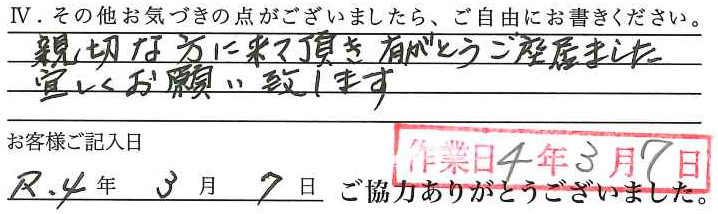 Ⅳ．その他お気づきの点がございましたら、ご自由にお書きください。
親切な方に来て頂き有がとうご座居ました
宜しくお願い致します
お客様ご記入日
作業日4年3月7日
R.4年 3月 7日 ご協力ありがとうございました。